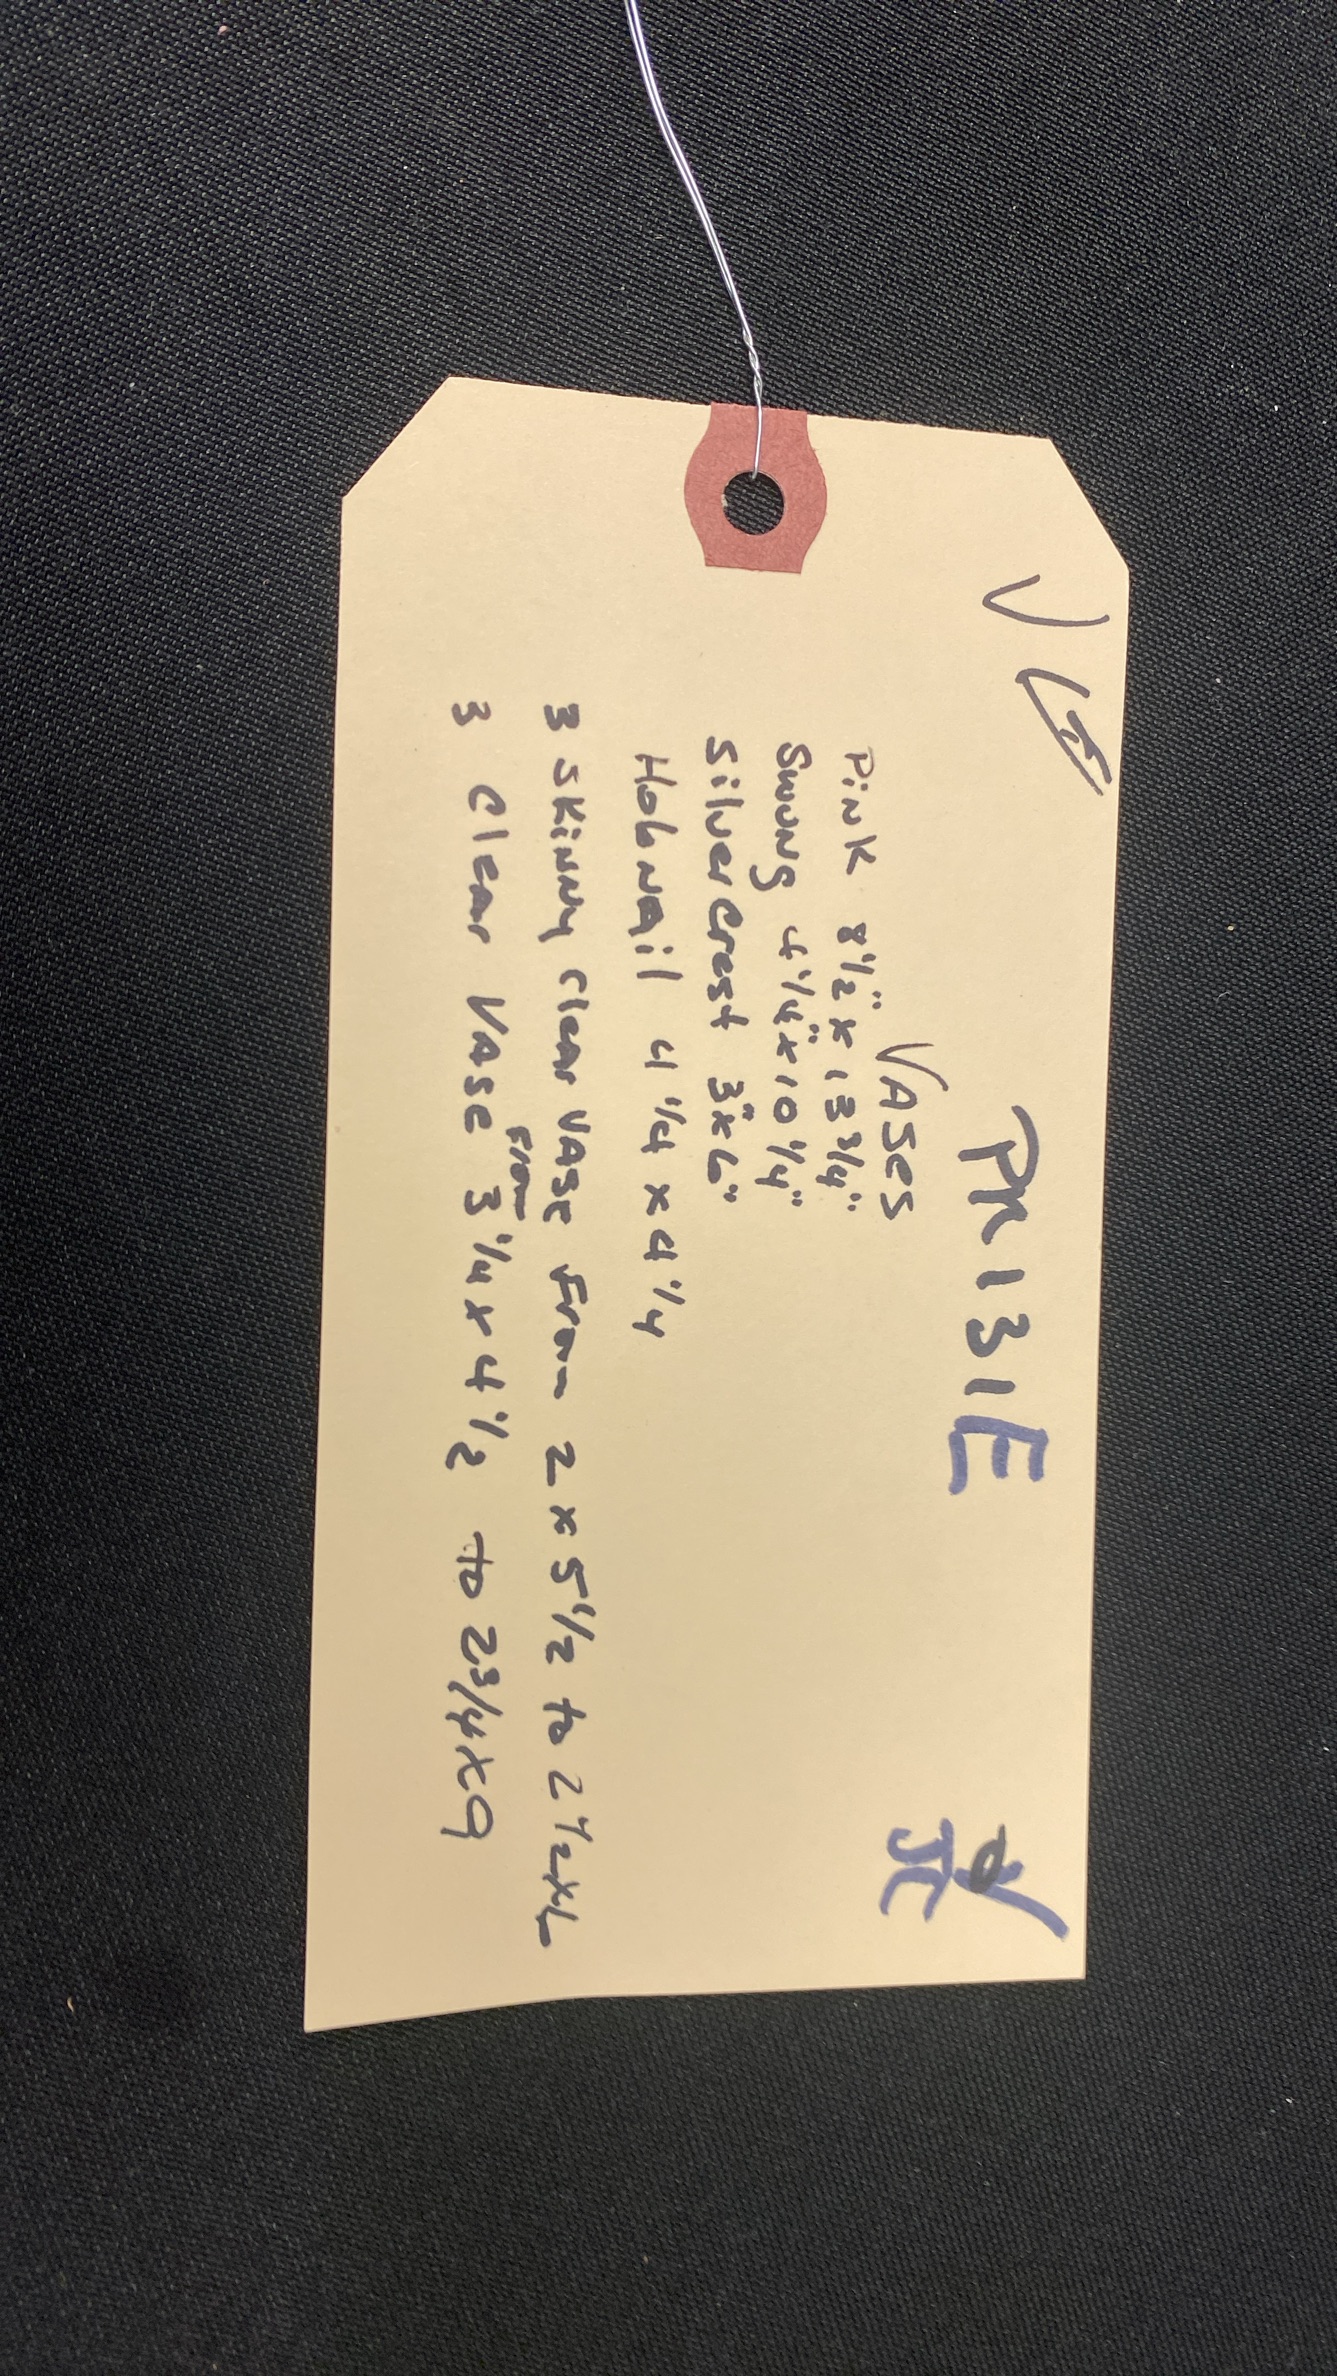 PR 131E
JC
VASES
Pink 8 1/2" x 13 3/4"
Swung 4 1/4" x 10 1/4"
Silvercrest 3" x 6"
Hobnail 4 1/4 x 4 1/4
3 Skinny Clear VASE From 2 x 5 1/2 to 2 1/2 x 6
3 Clear VASE From 3 1/4 x 4 1/2 to 2 3/4 x 9